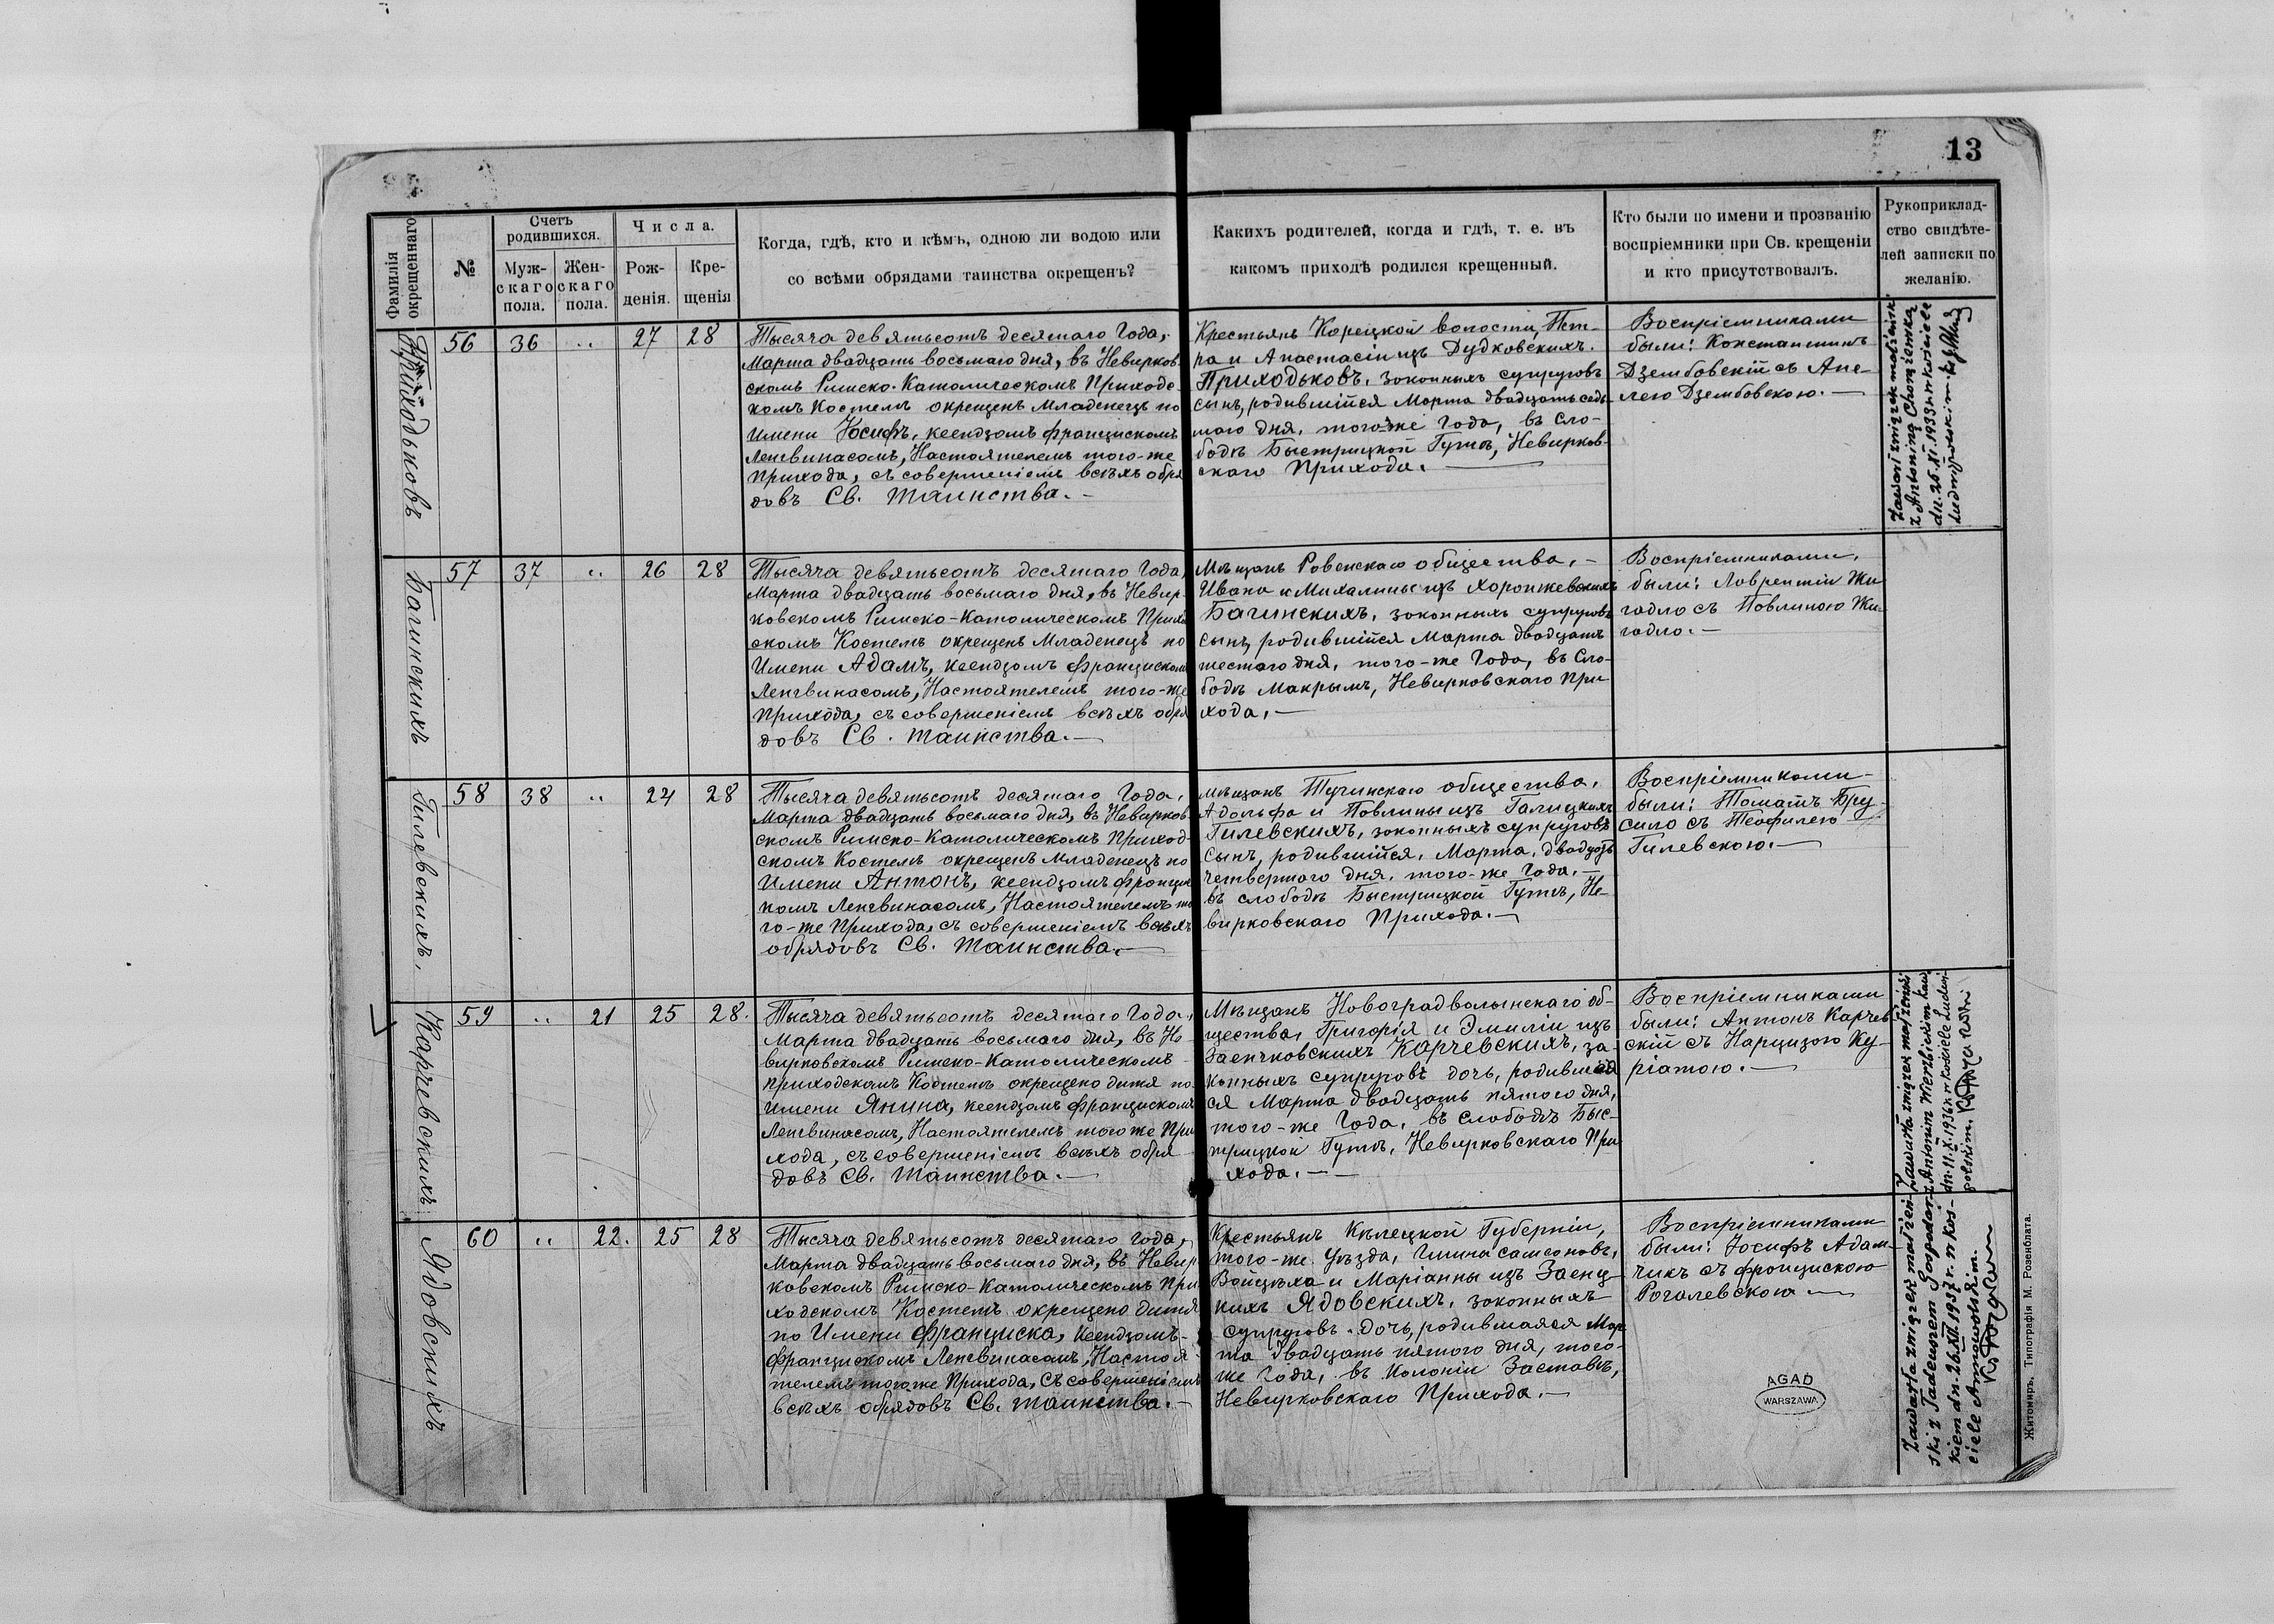 13
Фамилія окрещеннаго
№
Счетъ родившихся.
Муж-скаго пола.
Жен-скаго пола.
Числа.
Рож-денія.
Кре-щенія
Когда, гдѣ, кто и кѣмъ, одною ли водою или
со всѣми обрядами таинства окрещенъ?
Какихъ родителей, когда и гдѣ, т. е. въ
какомъ приходѣ родился крещенный.
Кто были по имени и прозванію
воспріемники при Св. крещеніи
и кто присутствовалъ.
Рукоприклад-
ство свидѣте-
лей записки по
желанію.
Приходьковъ
56 36 .. 27 28
Тысяча девятьсотъ десятаго Года,
Марта двадцать восьмаго дня, въ Невирков-
скомъ Римско-Католическомъ Приходс-
комъ Костелѣ окрещенъ Младенецъ по
Имени Іосифъ, ксендзомъ Францискомъ
Ленгвинасомъ, Настоятелемъ того-же
Прихода, съ совершеніемъ всѣхъ обря
довъ Св. Таинства.-
Крестьянъ Корецкой волости, Пет-
ра и Анастасіи изъ Дудковскихъ.
Приходьковъ, законныхъ супруговъ
сынъ, родившійся Марта двадцать седь-
маго дня, того-же Года, въ Сло-
бодѣ Быстрицкой Гутѣ, Невирков-
скаго Прихода.
Воспріемниками
были: Константинъ
Дзембовскій съ Апе-
лею Дзембовскою.-
Zawarł związek małżeński
z Antoniną Chorążenką
dn. 25.XI.1933 r. w kościele
Ludwipolskim.
Багинскихъ
57 37 .. 26 28
Тысяча девятьсотъ десятаго Года,
Марта двадцать восьмаго дня, въ Невир-
ковскомъ Римско-Католическомъ Прихо
скомъ Костелѣ окрещенъ Младенецъ по
Имени Адамъ, ксендзомъ Францискомъ
Ленгвинасомъ, Настоятелемъ того-же
Прихода, съ совершеніемъ всѣхъ обря
довъ Св. Таинства.-
Мѣщанъ Ровенскаго общества,-
Ивана и Михалины изъ Хоронжевскихъ
Багинскихъ, законныхъ супруговъ
сынъ, родившійся Марта двадцать
шестаго дня, того-же Года, въ Сло-
бодѣ Макрымъ, Невирковскаго При
хода,-
Воспріемниками,
были: Лаврентій Жи
гадло съ Павлиною Жи-
гадло.-
Гилевскихъ,
58 38 .. 24 28
Тысяча девятьсотъ десятаго Года,
Марта двадцать восьмаго дня, въ Невирков-
скомъ Римско-Католическомъ Приход-
скомъ Костелѣ окрещенъ Младенецъ по
Имени Антонъ, ксендзомъ Францис
комъ Ленгвинасомъ, Настоятелемъ то
го-же Прихода, съ совершеніемъ всѣхъ
обрядовъ Св. Таинства.-
Мѣщанъ Тучинскаго общества,
Адольфа и Павлины изъ Галицкихъ
Гилевскихъ, законныхъ супруговъ
Сынъ, родившійся, Марта, двадцать
четвертаго дня, того-же Года,-
въ слободѣ Быстрицкой Гутѣ, Не-
вирковскаго Прихода.-
Воспріемниками-
были: Томашъ Бру-
сило съ Теофилею
Гилевскою.-
Карчевскихъ
59 .. 21 25 28.
Тысяча девятьсотъ десятаго Года,
Марта двадцать восьмаго дня, въ Не-
вирковскомъ Римско-Католическомъ
приходскомъ Костелѣ окрещено дитя по
имени Янина, ксендзомъ Францискомъ
Ленгвинасомъ, Настоятелемъ того же При
хода, съ совершеніемъ всѣхъ обря-
довъ Св. Таинства.-
Мѣщанъ Новоградволынскаго об-
щества, Григорія и Эмиліи изъ
Заенчковскихъ Карчевскихъ, за-
конныхъ супруговъ дочь, родившая
ся Марта двадцать пятого дня,
того-же Года, въ слободѣ Быс-
трицкой Гутѣ, Невирковскаго При
хода.--
Воспріемниками
были: Антонъ Карчев
скій съ Нарцизою Ку-
ріатою.-
Zawarła związek małżeński
z Antonim Wierzbickim
dn. 11. 1936 r. w kościele Ludwi-
polskim.
Ядовскихъ
60 .. 22. 25 28
Тысяча девятьсотъ десятаго Года,
Марта двадцать восьмаго дня, въ Невир
ковскомъ Римско-Католическомъ При
ходскомъ Костелѣ окрещено дитя
по Имени Франциска, ксендзомъ-
Францискомъ Ленгвинасомъ, Настоя-
телемъ того же Прихода, съ совершеніемъ
всѣхъ обрядовъ Св. таинства.-
Крестьянъ Кѣлецкой Губерніи,
того-же Уѣзда, Гмина Самсоновъ,
Войцѣха и Маріанны изъ Заенц
кихъ Ядовскихъ, законныхъ
супруговъ. Дочь, родившаяся Мар
та двадцать пятого дня, того-
же Года, въ Колоніи Заставѣ,
Невирковскаго Прихода.-
Воспріемниками
были: Іосифъ Адам-
чикъ съ Францискою
Рогалевскою-
Zawarła związek małżeń-
ski z Tadeuszem Gospodar-
kiem dn. 26.XII.1937 r. w koś-
ciele Annowolskim.
AGAD
WARSZAWA
Житомиръ, Типографія М. Розенблата.